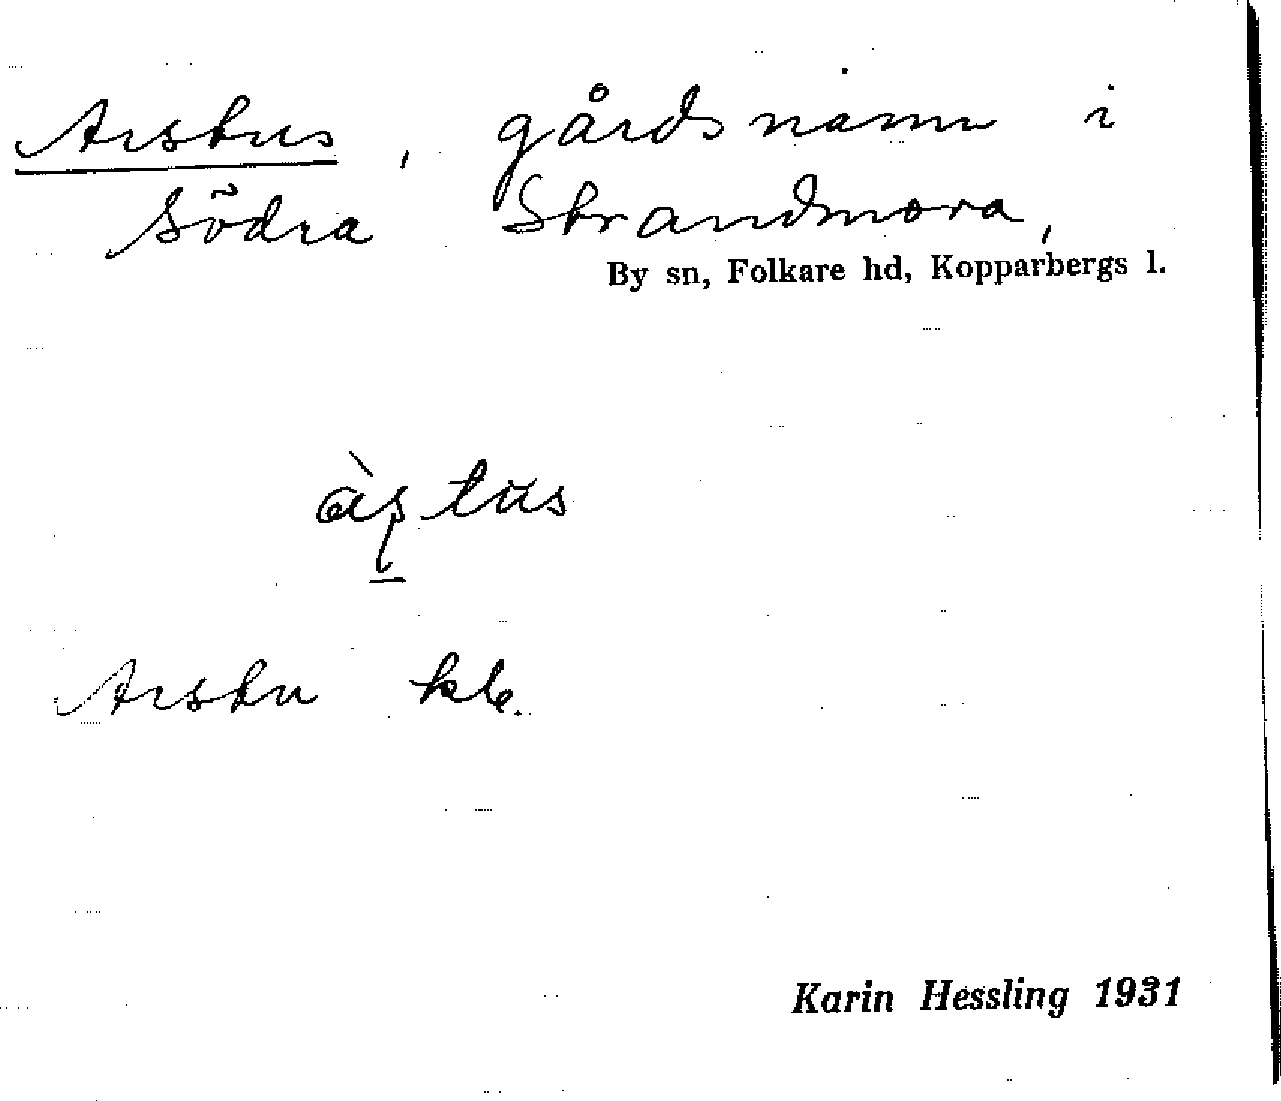 Arstus, gårdsnamn i
Södra Strandmora,
By sn, Folkare hd, Kopparbergs l.
Arstu
Karin Hessling 1931